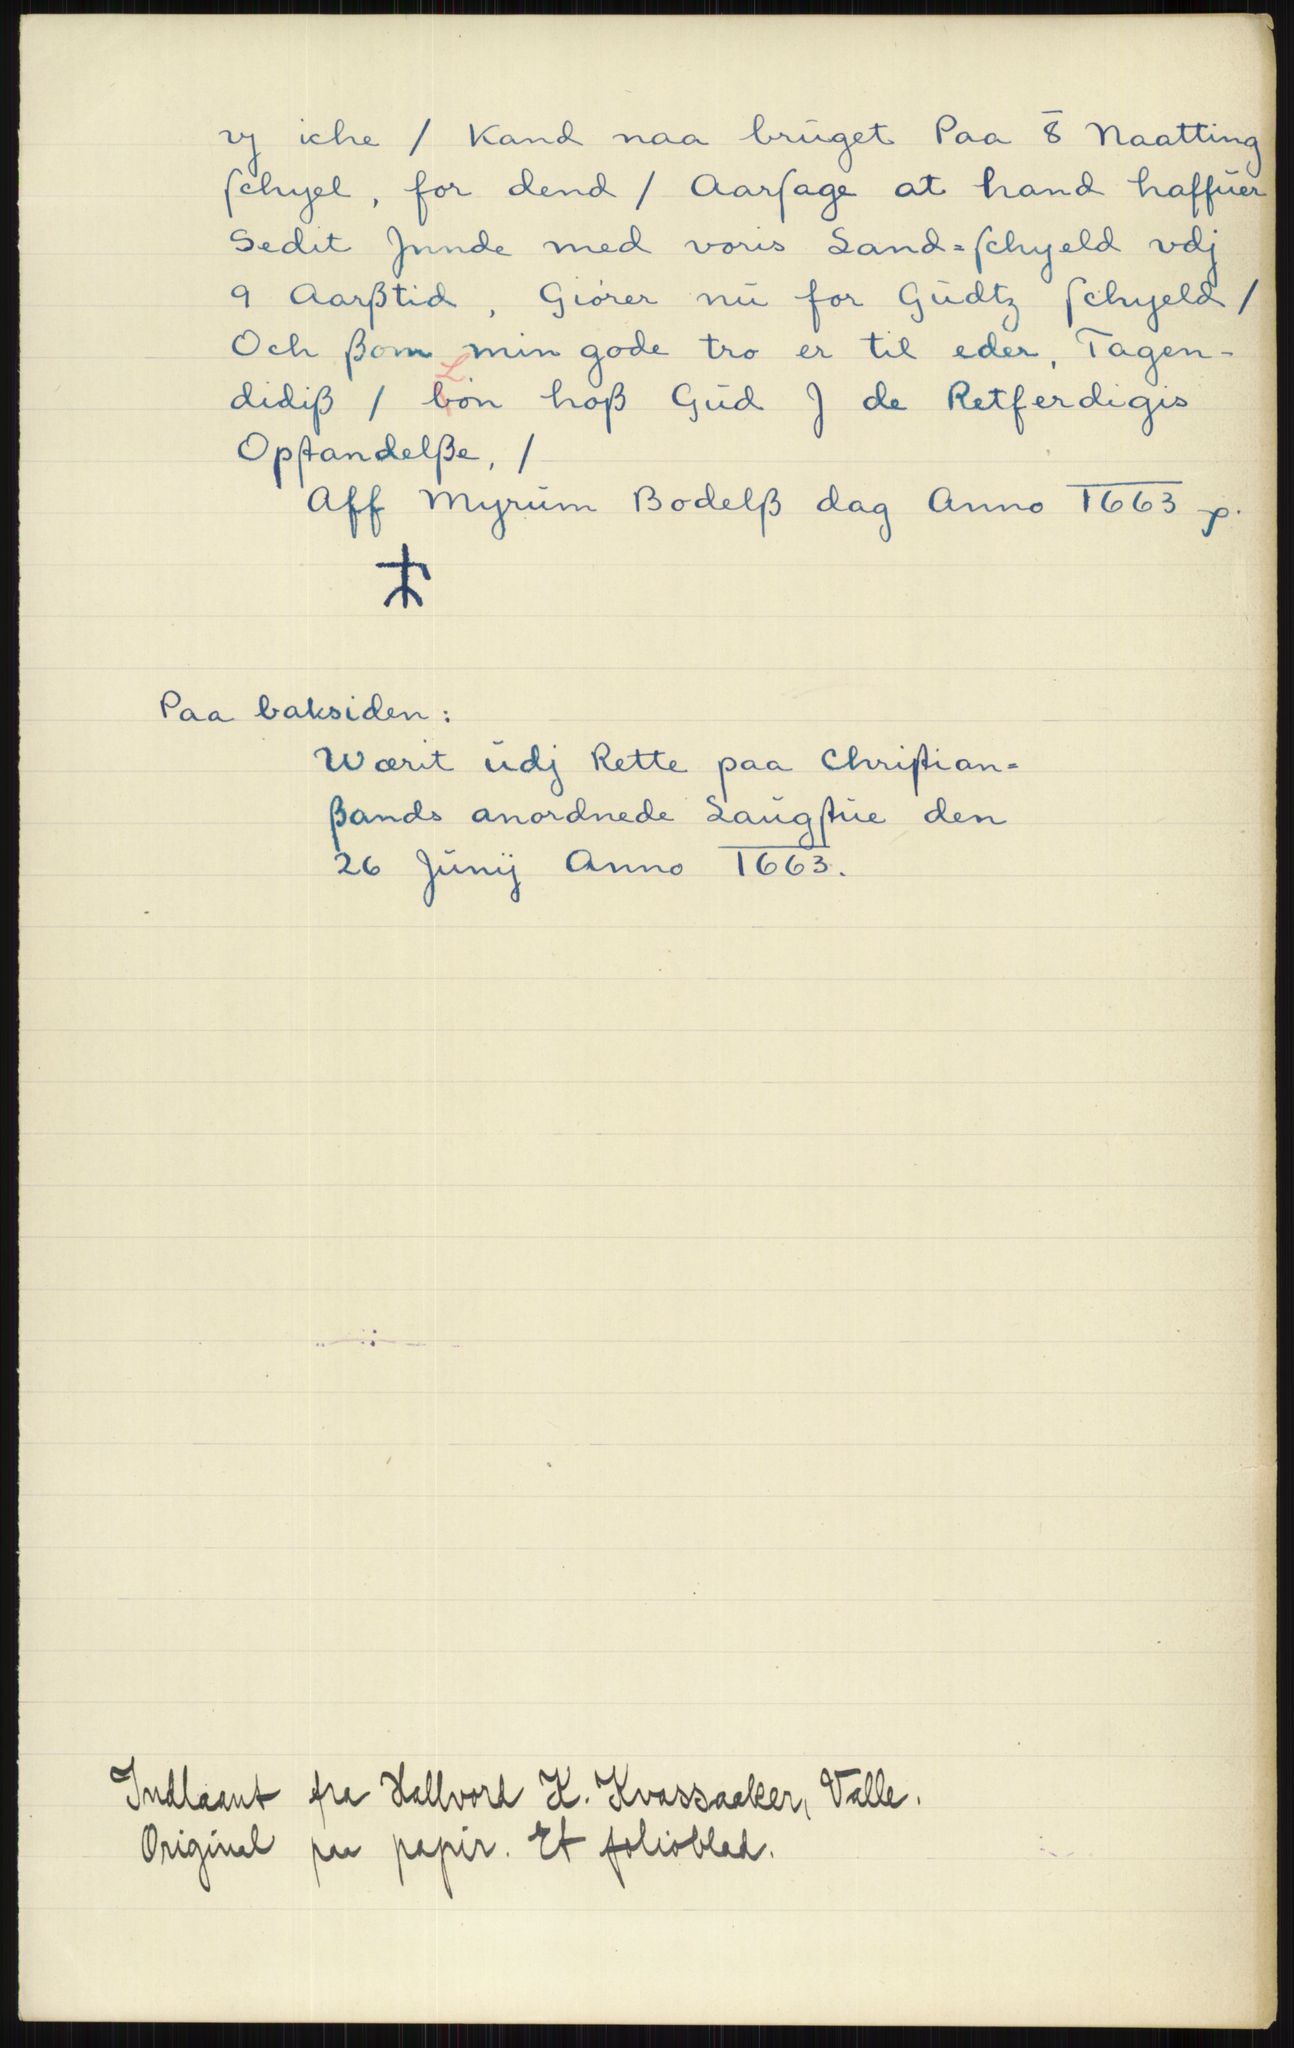 vj iche / Kand naa brüget Paa 8̄ Naatting
ſchyel, for dend / Aarſage at hand haffüer
Sedit Jnnde med voris Land=ſchyeld vdj
9 Aarßtid, Giörer nü for Güdtz ſchyeld /
Och ßom min gode tro er til eder, Tagen-
didiß / L bön hoß Güd J de Retferdigis
Opſtandelße, /
Aff Myrüm Bodelß dag Anno 1663 p.
Paa baksiden:
Wærit üdj Rette paa Chriſtian=
ßands anordnede Laügſtüe den
26 Jünij Anno 1663.
Indlaant fra Hallvord K. Kvassaaker, Valle.
Original paa papir. Et folioblad.